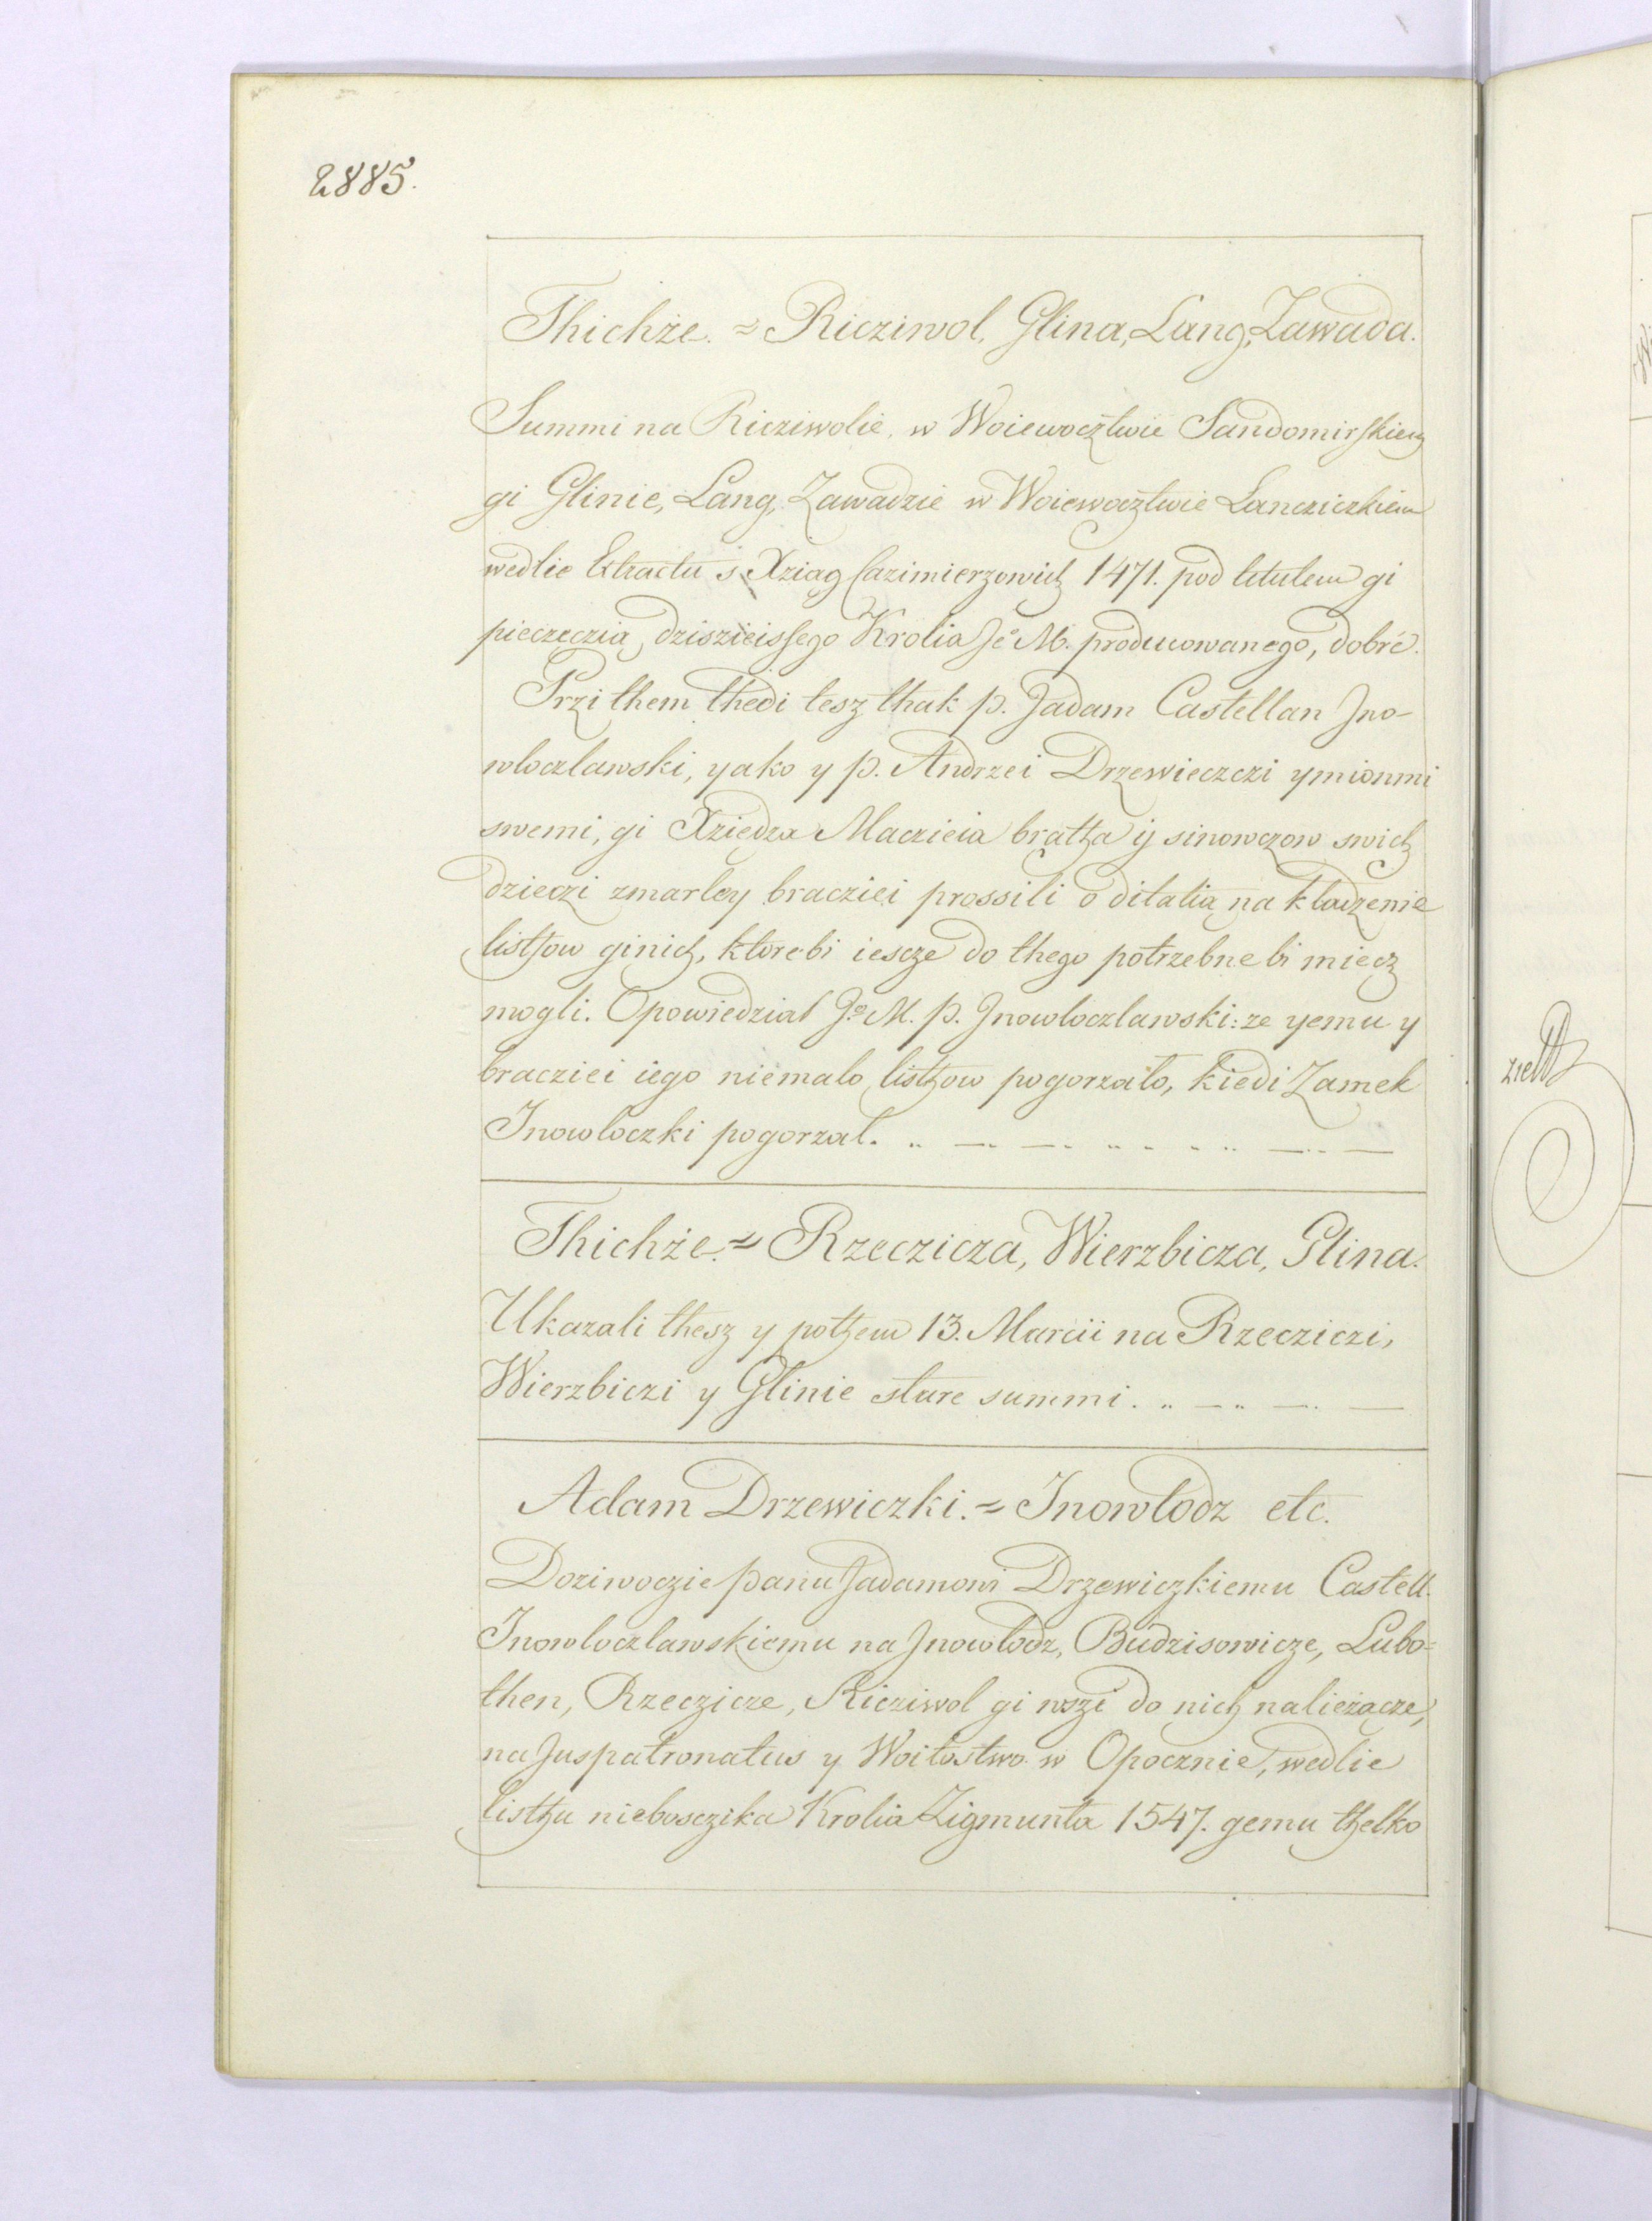 2885.
Thichże. = Ricziwol, Glina, Lang, Zawada.
Summi na Ricziwolie, w Woiewocztwie Sandomirskiem
gi Glinie, Lang, Zawadzie w Woiewocztwie Lancziczkiem
wedlie Extractu s Xziag Cazimierzowich 1471. pod titulem gi
pieczęczią dziszieissego Krolia Jė M. producowanego, dobrė.
Przi them thedi tesz thak p. Jadam Castellan Jno-
wloczlawski, yako y p. Andrzei Drzewieczczi ymionmi
swemi, gi Xziędza Maczieia bratha ij sinowczow swich
dzieczi zmarley bracziei prossili o dilatią na kładzenie
listhow ginich, ktorebi iescze do thego potrzebne bi miecz
mogli. Opowiedział Jº M. p. Jnowloczlawski: ze yemu y
bracziei iego niemalo listhow pogorzało, kiedi Zamek
Inowloczki pogorzał.
Thichże. = Rzeczicza, Wierzbicza, Glina.
Ukazali thesz y pothem 13. Marcii na Rzecziczi,
Wierzbiczi y Glinie stare summi.
Adam Drzewiczki. = Inowlodz etc.
Doziwoczie panu Jadamowi Drzewiczkiemu Castell.
Inowloczlawskiemu na Jnowlodz, Budzisowicze, Lubo=
then, Rzeczicze, Ricziwol gi wszi do nich należącze,
na Juspatronatus y Woitostwo w Opocznie, wedlie
listhu nieboszczika Krolia Zigmunta 1547. gemu thelko